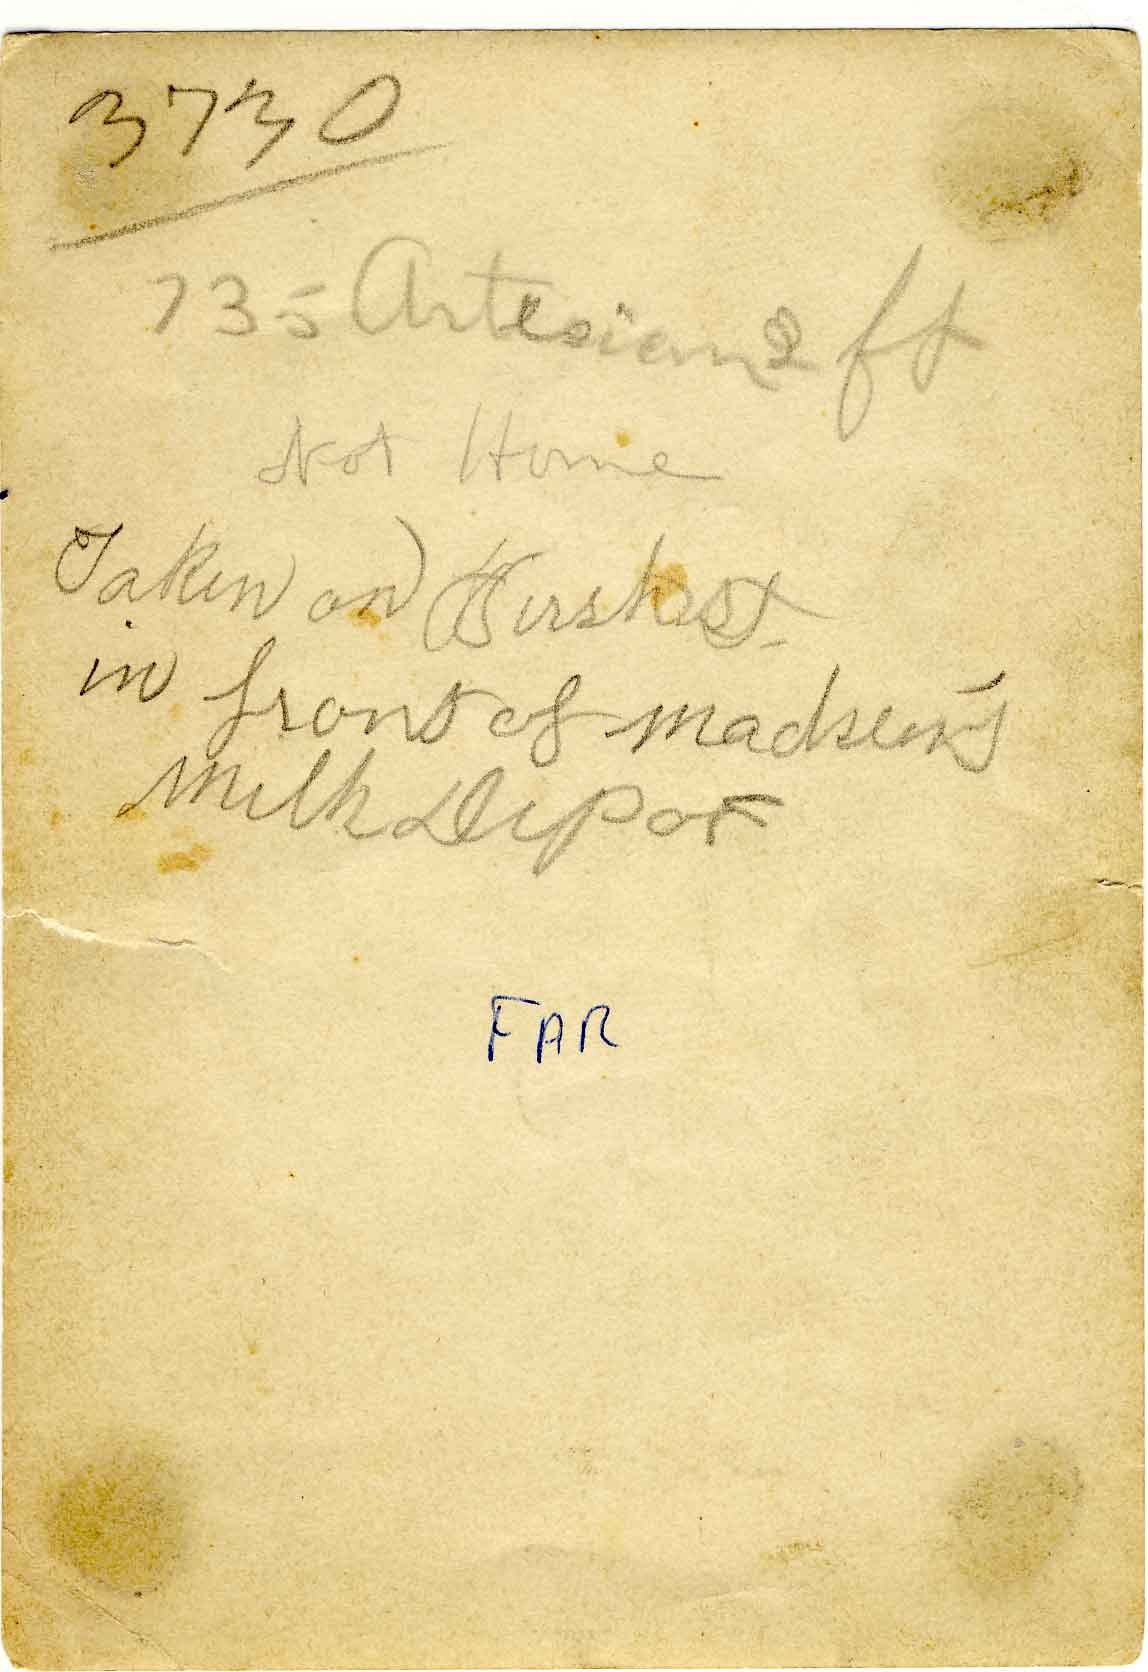 3730
735 Artesian 2 ft
Not Home
Taken on Hirsh St.
in front of Madsen's
Milk Depot
FAR